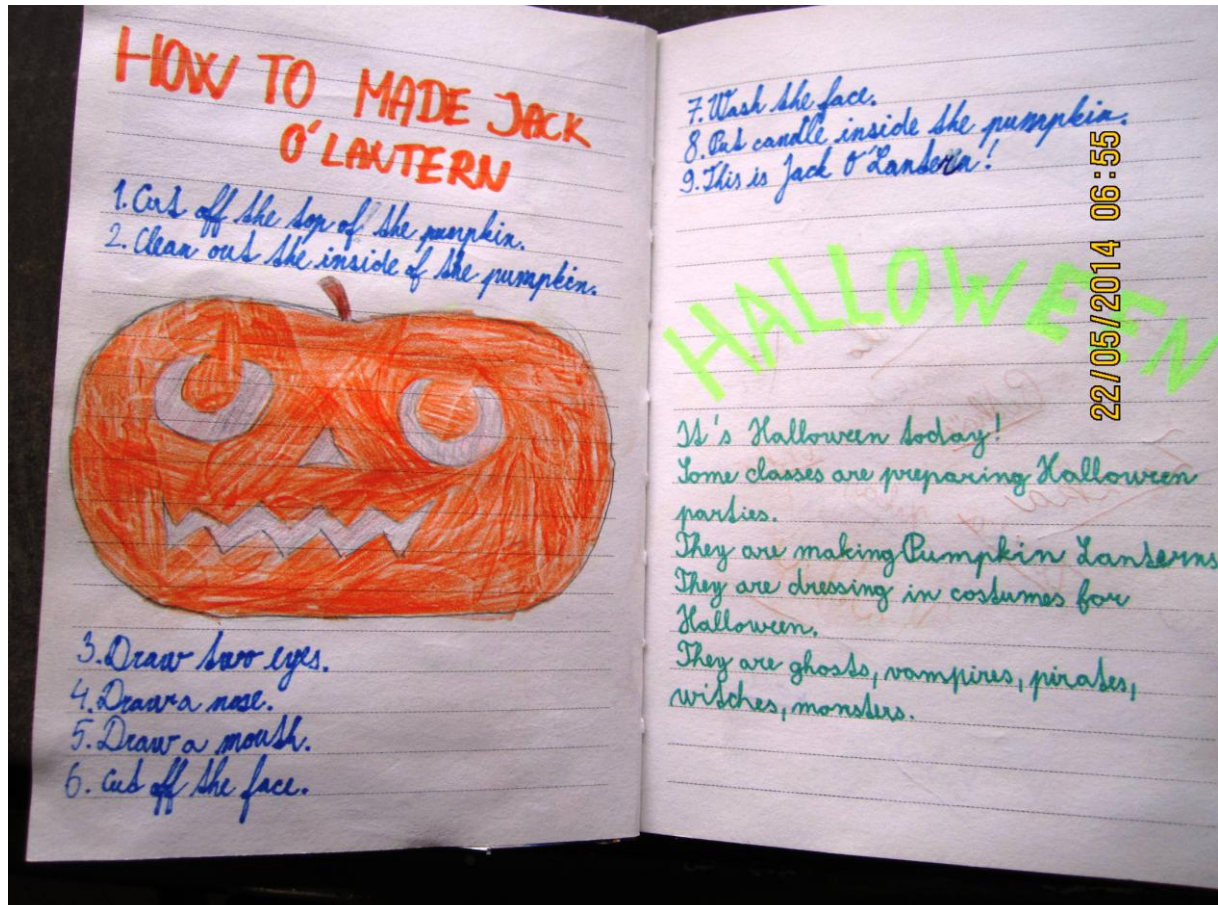 HOW TO MADE JACK
O'LANTERN
1. Cut off the top of the pumpkin.
2. Clean out the inside of the pumpkin.
3. Draw two eyes.
4. Draw a nose.
5. Draw a mouth.
6. Cut off the face.
7. Wash the face.
8. Put candle inside the pumpkin.
9. This is Jack O'Lantern!
HALLOWEEN
It's Halloween today!
Some classes are preparing Halloween
parties.
They are making Pumpkin Lanterns
They are dressing in costumes for
Halloween.
They are ghosts, vampires, pirates,
witches, monsters.
22/05/2014 06:55